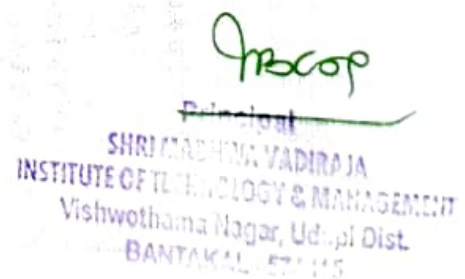 Principal
SHRI MADHWA VADIRAJA
INSTITUTE OF TECHNOLOGY & MANAGEMENT
Vishwothama Nagar, Udupi Dist.
BANTAKAL